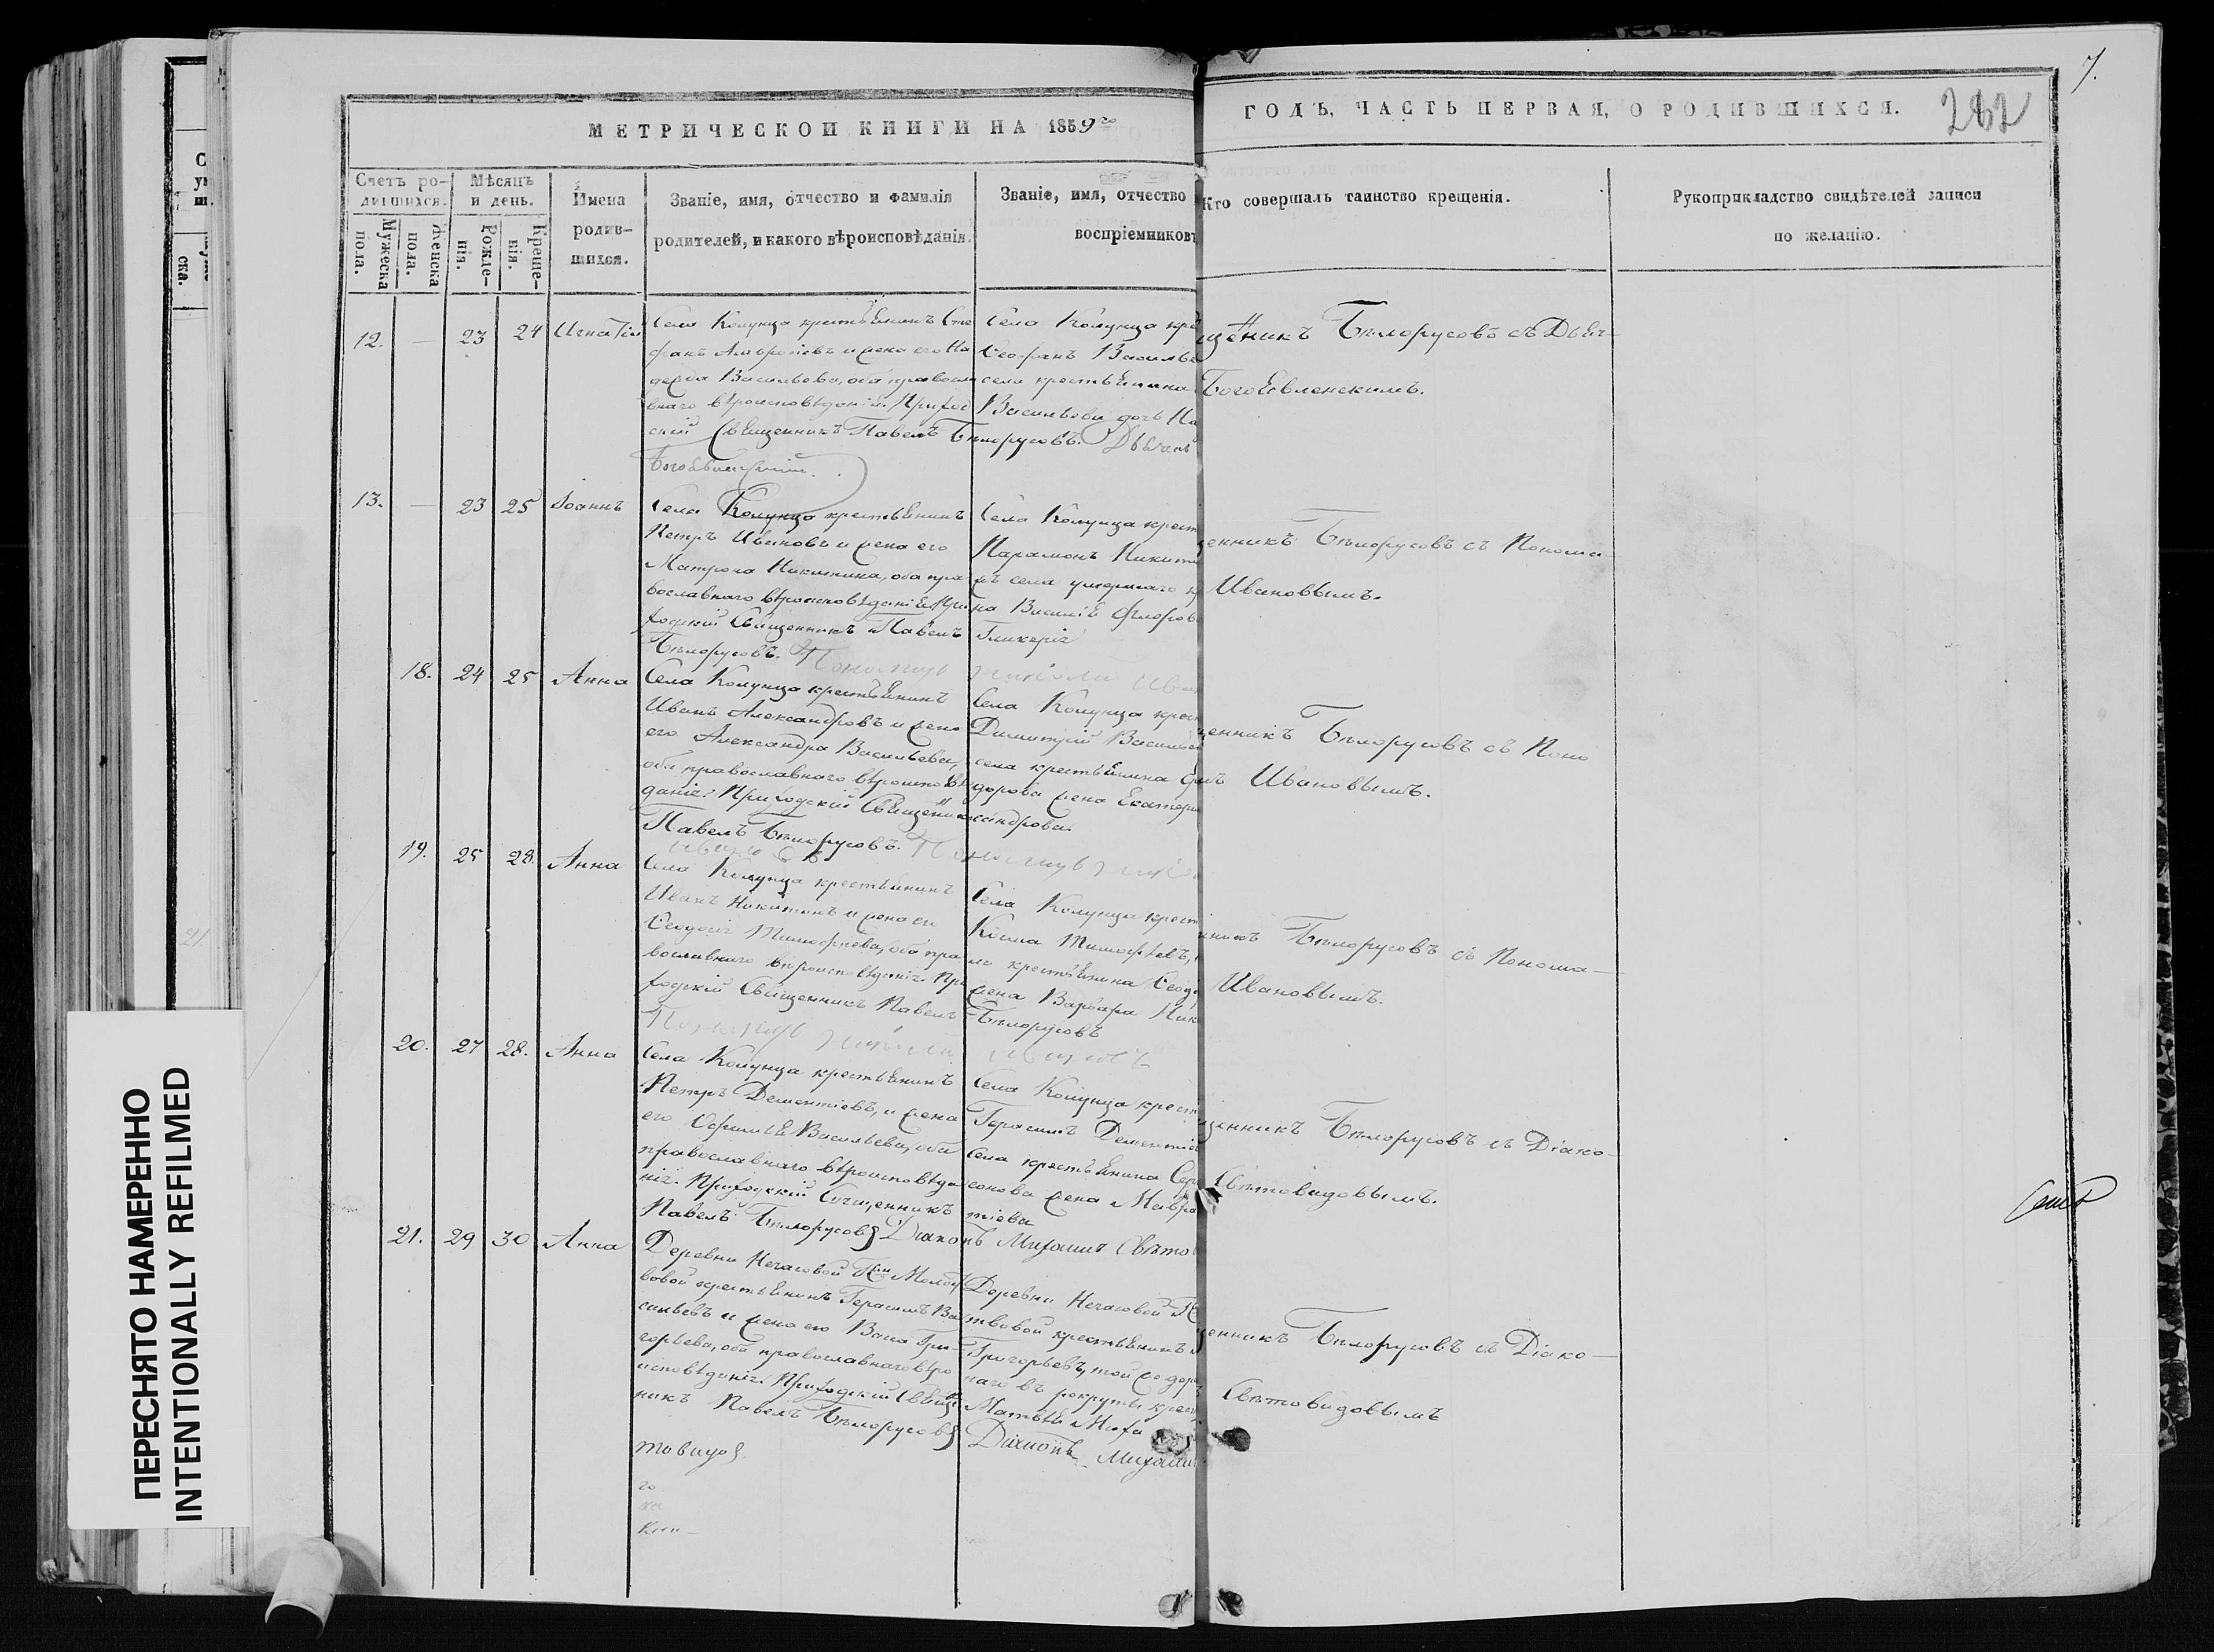 7.
262
МЕТРИЧЕСКОЙ КНИГИ НА 1859го
ГОДЪ, ЧАСТЬ ПЕРВАЯ, О РОДИВШИХСЯ.
Счетъ ро-
дившихся.
Мужеска
пола.
Женска
пола.
Мѣсяцъ
и день.
Рожде-
нія.
Креще-
нія.
Имена
родив-
шихся.
Званіе, имя, отчество и фамилія
родителей, и какого вѣроисповѣданія.
Званіе, имя, отчество
воспріемниковъ
Кто совершалъ таинство крещенія.
Рукоприкладство свидѣтелей записи
по желанію.
12. — 23 24 Игнатій
Села Колунца крестьянинъ Сте
фанъ Амвросіевъ и жена его На
дежда Васильева, оба правосла
внаго вѣроисповѣданій. Приход
скій Священникъ Павелъ Бѣлорусовъ. Дьячекъ
Богоявленскій.
Села Колунца кре
Ѳеофанъ Василье
села крестьянина
Васильева дочь На
щенникъ Бѣлорусовъ съ Дьяч-
Богоявленскимъ.
13. — 23 25 Іоаннъ
Села Колунца крестьянинъ
Петръ Ивановъ и жена его
Матрона Никитина, оба пра
вославнаго вѣроисповѣданія При
ходскій Священникъ Павелъ
Бѣлорусовъ. Пономарь Николай Ива
Села Колунца крест
Парамонъ Никити
жъ села умершаго к
на Василія Флоров
Гликерія
щенникъ Бѣлорусовъ съ Понома-
Ивановымъ.
18. 24 25 Анна
Села Колунца крестьянинъ
Иванъ Александровъ и жена
его Александра Васильева,
оба православнаго вѣроисповѣ
данія. Приходскій Священникъ
Павелъ Бѣлорусовъ. Пономарь Никол
Ивановъ
Села Колунца крест
Димитрій Васильев
села крестьянина
дорова жена Екатери
ксандрова.
щенникъ Бѣлорусовъ съ Поно
Ивановымъ.
19. 25 28. Анна
Села Колунца крестьянинъ
Иванъ Никитинъ и жена его
Ѳеодосія Тимофѣева, оба пра
вославнаго вѣроисповѣданія При
ходскій Священникъ Павелъ Бѣлорусовъ
Пономарь Николай Ивановъ
Села Колунца крест
Косма Тимофѣевъ,
ла крестьянина Ѳеодо
жена Варвара Ник
нникъ Бѣлорусовъ съ Понома—
Ивановымъ.
20. 27 28. Анна
Села Колунца крестьянинъ
Петръ Дементіевъ, и жена
его Ѳеѳимія Васильева, оба
православнаго вѣроисповѣда
нія. Приходскій Священникъ
Павелъ Бѣлорусовъ Діаконъ Михаилъ Свѣто
Села Колунца крест
Герасимъ Дементіе
села крестьянина Сер
жена Мавра
тіева
щенникъ Бѣлорусовъ съ Діако-
Свѣтовидовымъ.
21. 29 30 Анна
Деревни Нечаевой
вовой крестьянинъ Герасимъ Ва
сильевъ и жена его Васса Гри-
горьева, оба православнаго вѣро
исповѣданія. Приходскій Свящ
никъ Павелъ Бѣлорусовъ Діаконъ Михаилъ
товидов.
Деревни Нечаевой
твовой крестьянинъ
Григорьевъ, той же дере
наго въ рекруты крест
Матвѣя Миха
щенникъ Бѣлорусовъ съ Діако—
Свѣтовидовымъ
ПЕРЕСНЯТО НАМЕРЕННО
INTENTIONALLY REFILMED